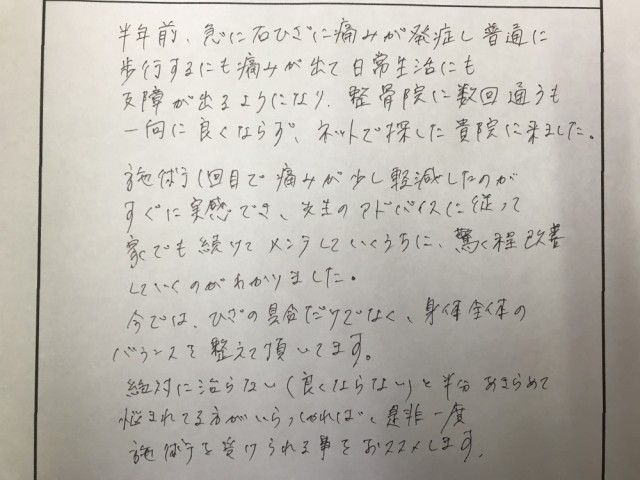 半年前、急に右ひざに痛みが発症し普通に
歩行するにも痛みが出て日常生活にも
支障が出るようになり、整骨院に数回通うも
一向に良くならず、ネットで探した貴院に来ました。
施術1回目で痛みが少し軽減したのが
すぐに実感でき、先生のアドバイスに従って
家でも続けてメンテしていくうちに、驚く程改善
していくのがわかりました。
今では、ひざの具合だけでなく、身体全体の
バランスを整えて頂いてます。
絶対に治らない(良くならない)と半分あきらめて
悩まれてる方がいらっしゃれば、是非一度
施術を受けられる事をおススメします。